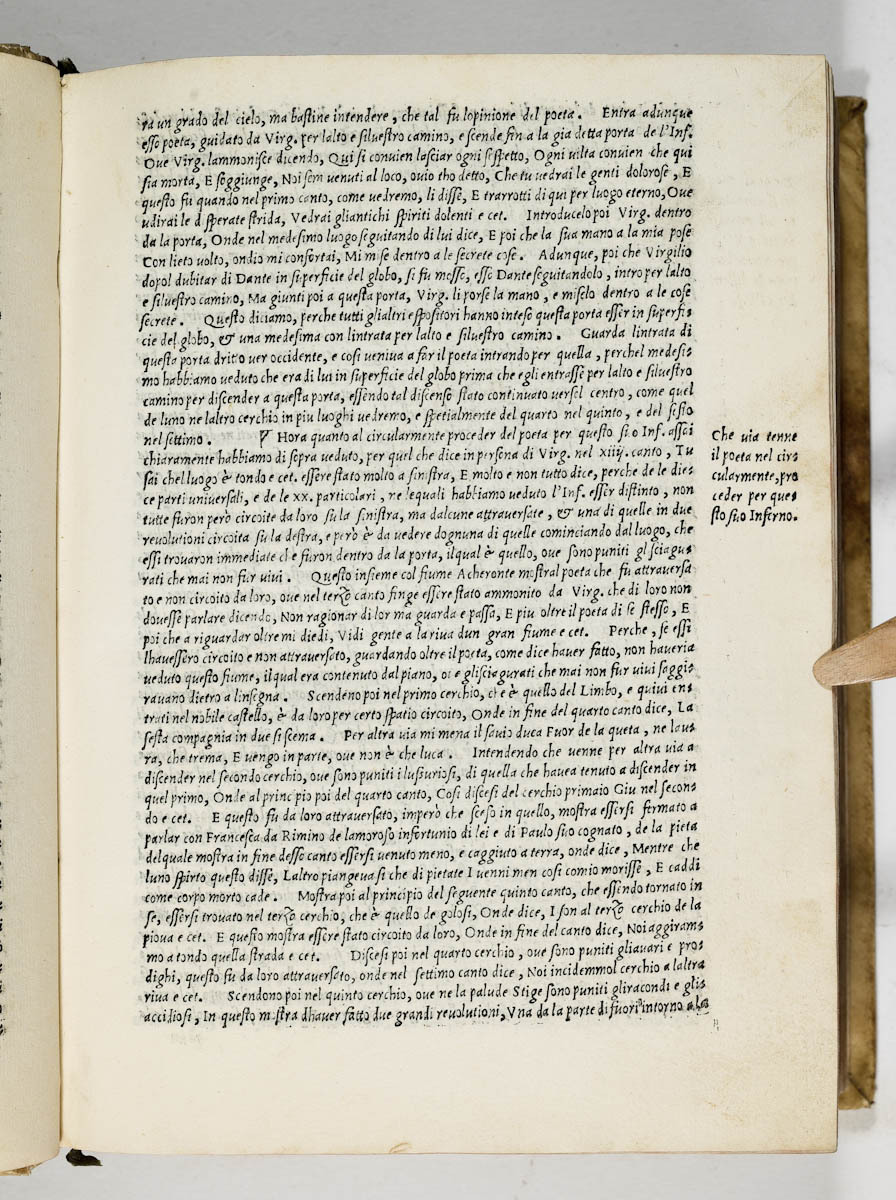 ra un grado del cielo, ma bastine intendere, che tal fu lopinione del poeta. Entra adunque
esso poeta, guidato da Virg. per lalto e silvestro camino, e scende fin a la gia detta porta de l'Inf.
Ove Virg. lammonisce dicendo, Qui si convien lasciar ogni sospetto, Ogni vilta convien che qui
sia morta, E soggiunge, Noi sem venuti al loco, ovio tho detto, Che tu vedrai le genti dolorose, E
questo fu quando nel primo canto, come vedremo, li disse, E trarrotti di qui per luogo eterno, Ove
udirai le disperate strida, Vedrai gliantichi spiriti dolenti e cet. Introducelo poi Virg. dentro
da la porta, Onde nel medesimo luogo seguitando di lui dice, E poi che la sua mano a la mia pose
Con lieto volto, ondio mi confortai, Mi mise dentro a le secrete cose. Adunque, poi che Virgilio
dopol dubitar di Dante in superficie del globo, si fu mosso, esso Dante seguitandolo, intro per lalto
e silvestro camino, Ma giunti poi a questa porta, Virg. li porse la mano, e miselo dentro a le cose
secrete. Questo diciamo, perche tutti glialtri espositori hanno inteso questa porta esser in superfi-
cie del globo, & una medesima con lintrata per lalto e silvestro camino. Guarda lintrata di
questa porta dritto ver occidente, e cosi veniva a far il poeta intrando per quella, perchel medesi-
mo habbiamo veduto che era di lui in superficie del globo prima che egli entrasse per lalto e silvestro
camino per discender a questa porta, essendo tal discenso stato continuato versol centro, come quel
de luno ne laltro cerchio in piu luoghi vedremo, e spetialmente del quarto nel quinto, e del sesto
nel settimo. Hora quanto al circularmente proceder del poeta per questo suo Inf. assai
chiaramente habbiamo di sopra veduto, per quel che dice in persona di Virg. nel xiiij. canto, Tu
sai chel luogo è tondo e cet. essere stato molto a sinistra, E molto e non tutto dice, perche de le die-
ce parti universali, e de le xx. particolari, ne lequali habbiamo veduto l'Inf. esser distinto, non
tutte furon però circoite da loro su la sinistra, ma dalcune attraversate, & una di quelle in due
revolutioni circoita su la destra, e però è da vedere dognuna di quelle cominciando dal luogo, che
essi trovaron immediate che furon dentro da la porta, ilqual è quello, ove sono puniti gli sciagu-
rati che mai non fur vivi. Questo insieme col fiume Acheronte mostral poeta che fu attraversa
to e non circoito da loro, ove nel terzo canto finge essere stato ammonito da Virg. che di loro non
dovesse parlare dicendo, Non ragionar di lor ma guarda e passa, E piu oltre il poeta di se stesso, E
poi che a riguardar oltre mi diedi, Vidi gente a la riva dun gran fiume e cet. Perche, se essi
lhavessero circoito e non attraversato, guardando oltre il poeta, come dice haver fatto, non haveria
veduto questo fiume, ilqual era contenuto dal piano, ove glisciagurati che mai non fur vivi saggi-
ravano dietro a linsegna. Scendeno poi nel primo cerchio, che è quello del Limbo, e quivi en-
trati nel nobile castello, è da loro per certo spatio circoito, Onde in fine del quarto canto dice, La
sesta compagnia in due si scema. Per altra via mi mena il savio duca Fuor de la queta, ne lau-
ra, che trema, E vengo in parte, ove non è che luca. Intendendo che venne per altra via a
discender nel secondo cerchio, ove sono puniti i lussuriosi, di quella che havea tenuto a discender in
quel primo, Onde al principio poi del quarto canto, Cosi discesi del cerchio primaio Giu nel secon-
do e cet. E questo fu da loro attraversato, imperò che sceso in quello, mostra essersi fermato a
parlar con Francesca da Rimino de lamoroso infortunio di lei e di Paulo suo cognato, de la pieta
delquale mostra in fine desso canto essersi venuto meno, e caggiuto a terra, onde dice, Mentre che
luno spirto questo disse, Laltro piangeva si che di pietate I venni men cosi comio morisse, E caddi
come corpo morto cade. Mostra poi al principio del seguente quinto canto, che essendo tornato in
se, essersi trovato nel terzo cerchio, che è quello de golosi, Onde dice, I son al terzo cerchio de la
piova e cet. E questo mostra essere stato circoito da loro, Onde in fine del canto dice, Noi aggiram-
mo a tondo quella strada e cet. Discesi poi nel quarto cerchio, ove sono puniti gliavari e pro-
dighi, questo fu da loro attraversato, onde nel settimo canto dice, Noi incidemmol cerchio a laltra
riva e cet. Scendono poi nel quinto cerchio, ove ne la palude Stige sono puniti gliracondi e gli-
accidiosi, In questo mostra dhaver fatto due grandi revolutioni, Una da la parte di fuori intorno a la
Che via tenne
il poeta nel cir-
cularmente, pro
ceder per que-
sto suo Inferno.